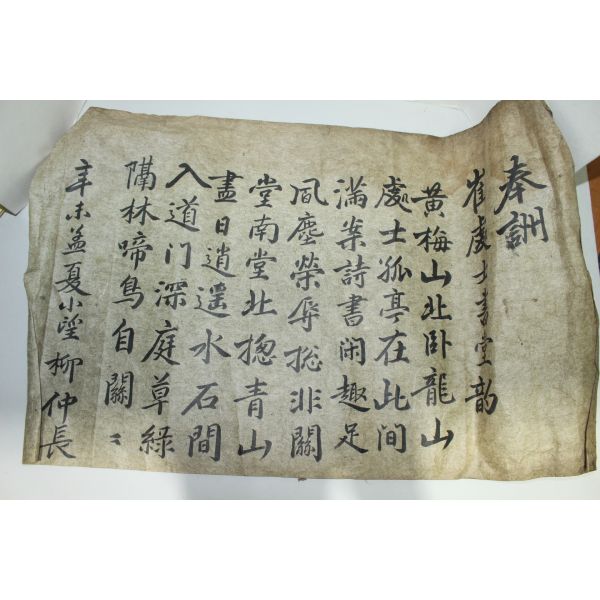 奉詶
崔處士書堂韵
黄梅山北卧龍山
處士孤亭在此间
滿案詩書闲趣足
風塵榮辱揔非關
堂南堂北揔青山
盡日逍遥水石間
入道门深庭草綠
隔林啼鳥自關〻
辛未孟夏小望柳仲長